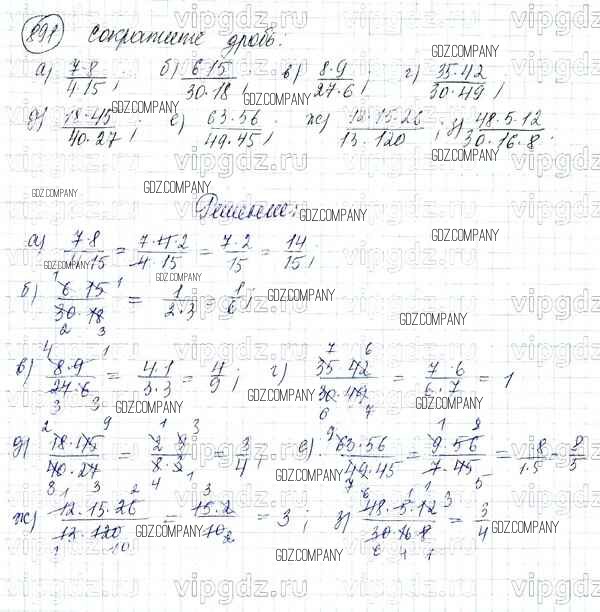 891 Сократите дробь:
а) 7·8/4·15; б) 6·15/30·18; в) 8·9/27·6; г) 35·42/30·49;
д) 18·45/40·27; е) 63·56/49·45; ж) 12·15·26/13·120; з) 48·5·12/30·16·8.
Решение:
а) 7·8/4·15 = 7·4·2/4·15 = 7·2/15 = 14/15;
б) 6·15/30·18 = 1/2·3 = 1/6;
в) 8·9/27·6 = 4·1/3·3 = 4/9; г) 35·42/30·49 = 7·6/6·7 = 1
д) 18·45/40·27 = = 3/4; е) 63·56/49·45 = 9·56/7·45 = 8/1·5 = 8/5
ж) 12·15·26/13·120 = 15·2/10 = 3; з) 48·5·12/30·16·8 = 3/4
GDZ.COMPANY
vipgdz.ru